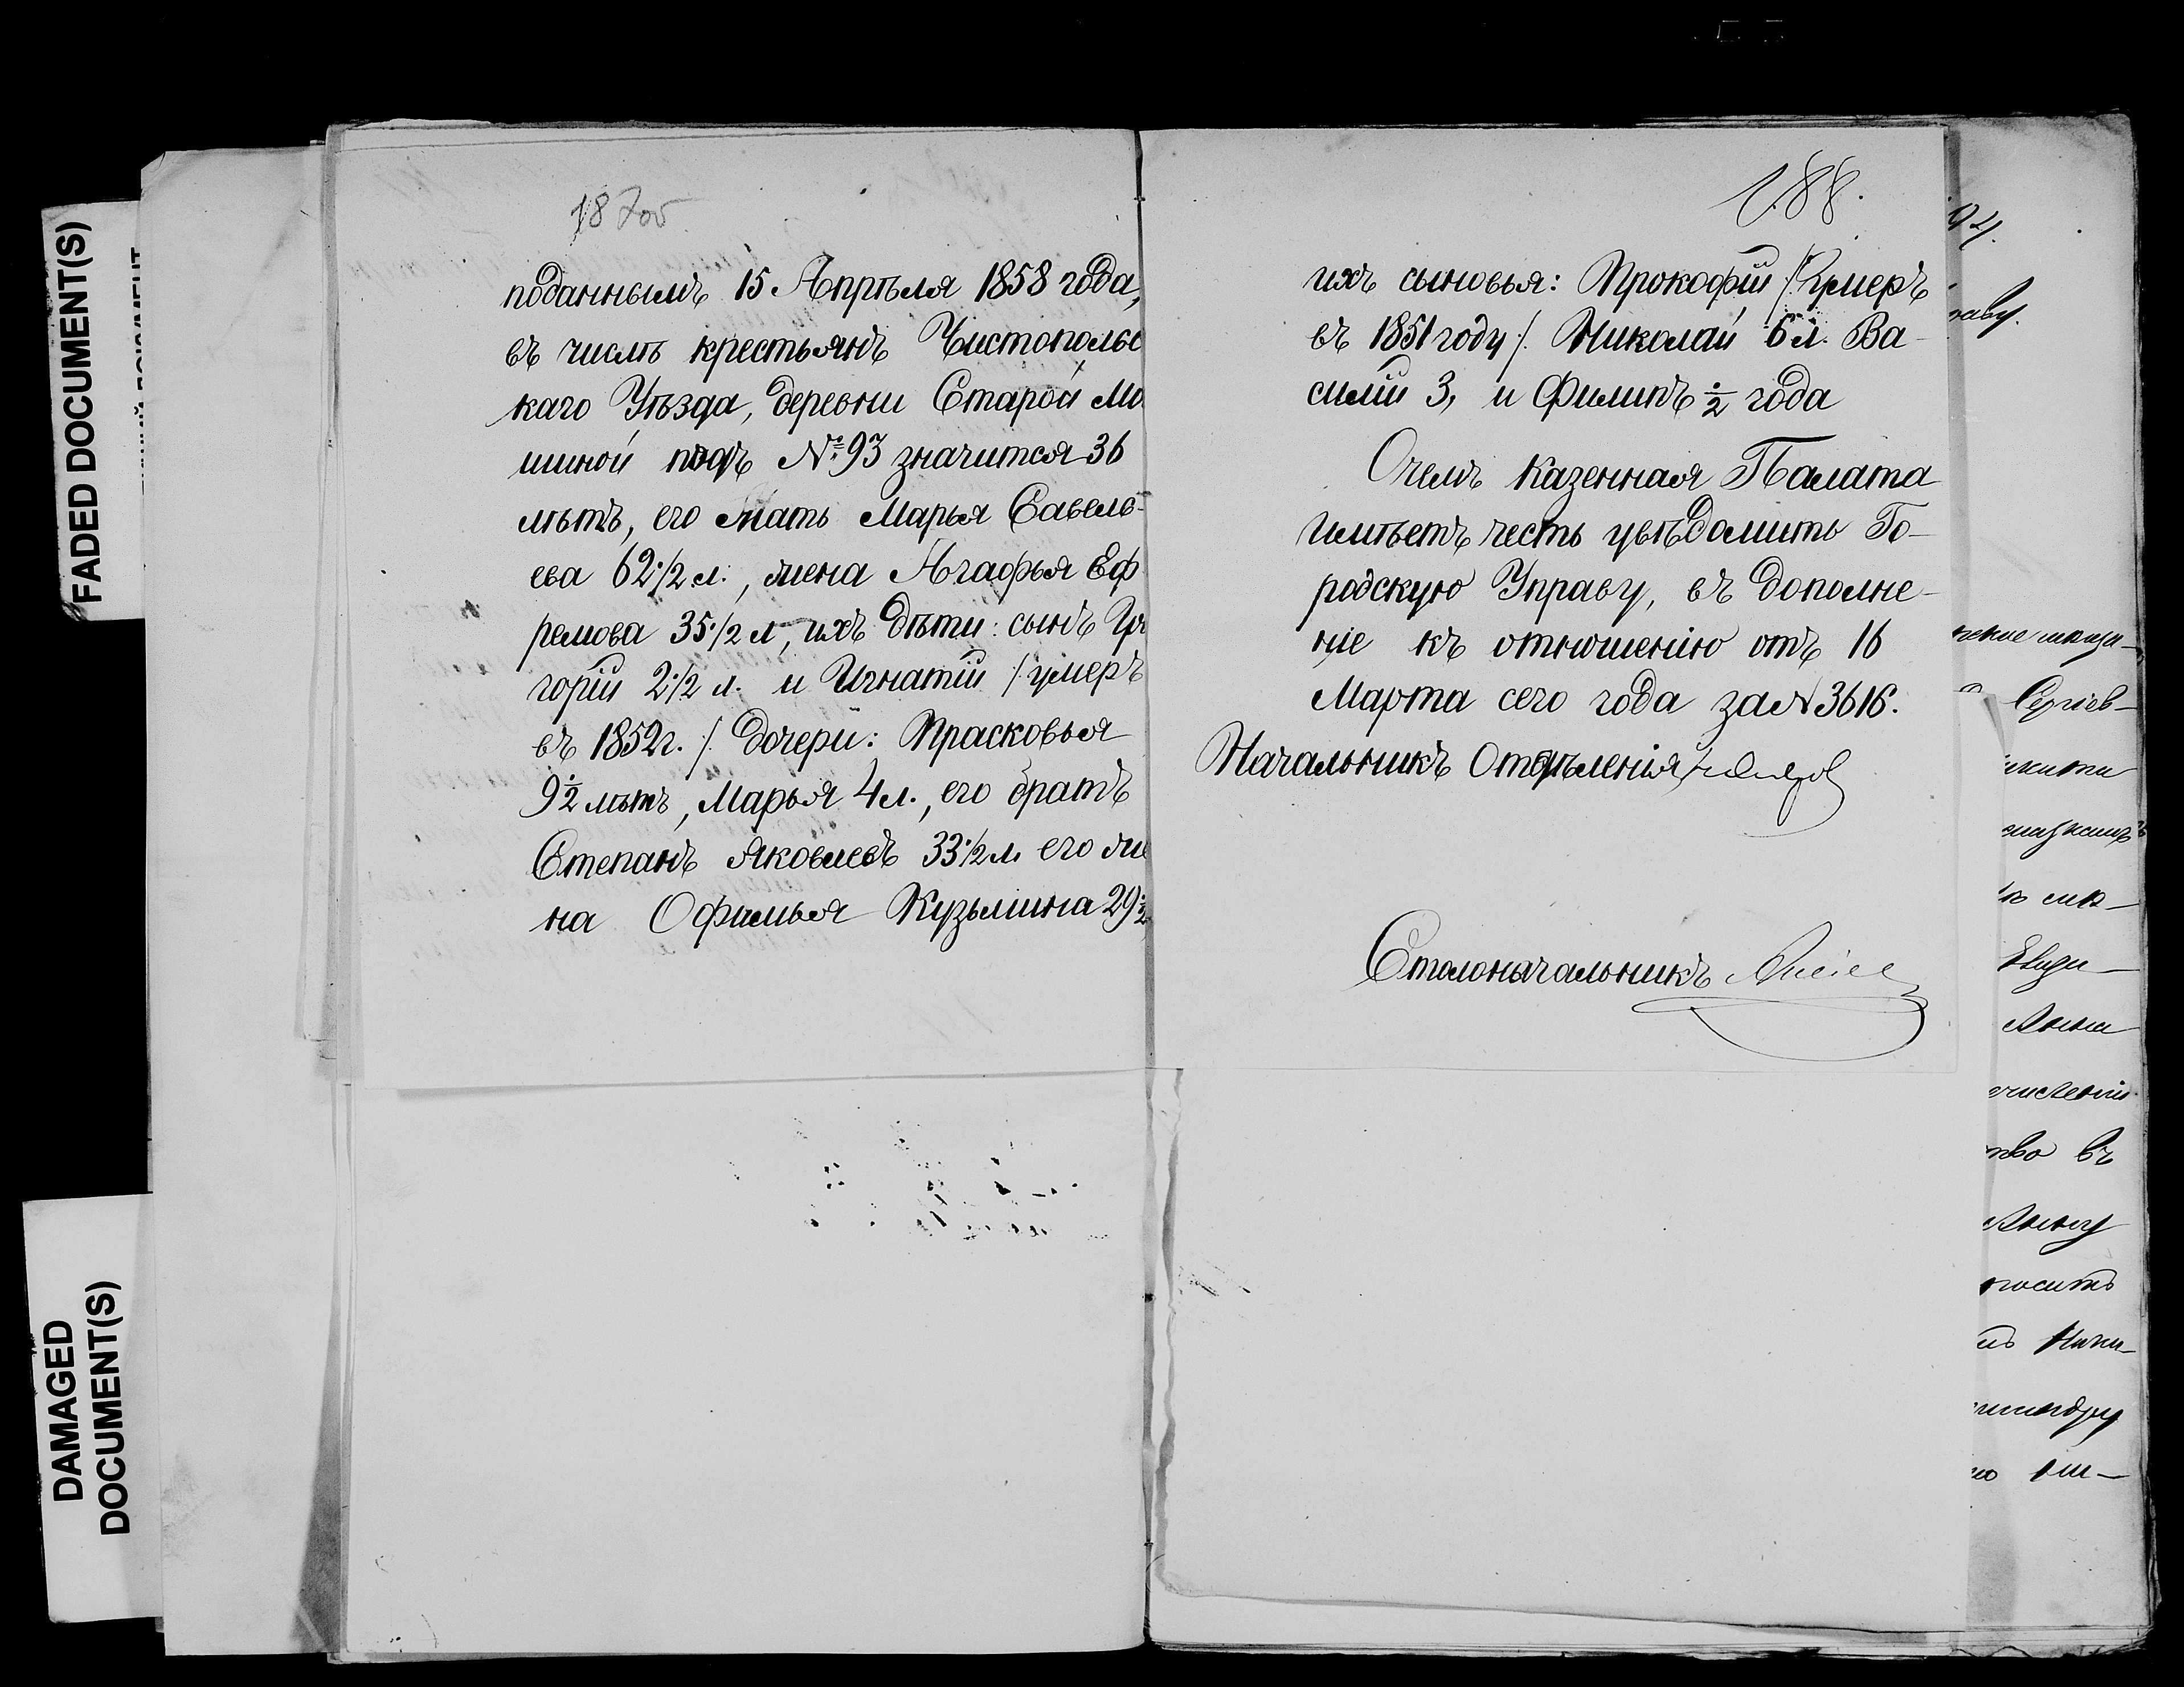 FADED DOCUMENT(S)
DAMAGED
DOCUMENT(S)
187об
поданнымъ 15 Апрѣля 1858 года,
въ числѣ крестьянъ Чистопольс
каго Уѣзда, деревни Старой Мо
шной подъ №93 значится 36
лѣтъ, его мать Марья Савель-
ева 62 1/2 л., жена Агафья Еф
ремова 35 1/2 л, ихъ дѣти: сынъ Гри
горій 2 1/2 л. и Игнатій /умеръ
въ 1852г./ дочери: Прасковья
9 1/2 лѣтъ, Марья 4 л., его братъ
Степанъ Яковлевъ 33 1/2 л его же
на Офимья Кузьмина 29 1/2
188.
ихъ сыновья: Прокофій /умеръ
въ 1851 году/. Николай 6 л. Ва-
силій 3, и Филипъ 1/2 года
Очемъ Казенная Палата
имѣетъ честь увѣдомить Го-
родскую Управу, въ дополне-
ніе къ отношенію отъ 16
Марта сего года за № 3616.
Начальникъ Отдѣленія
Столоначальникъ
94.
раву.
Сергіев-
Анна
тво въ
Анну
Ники-